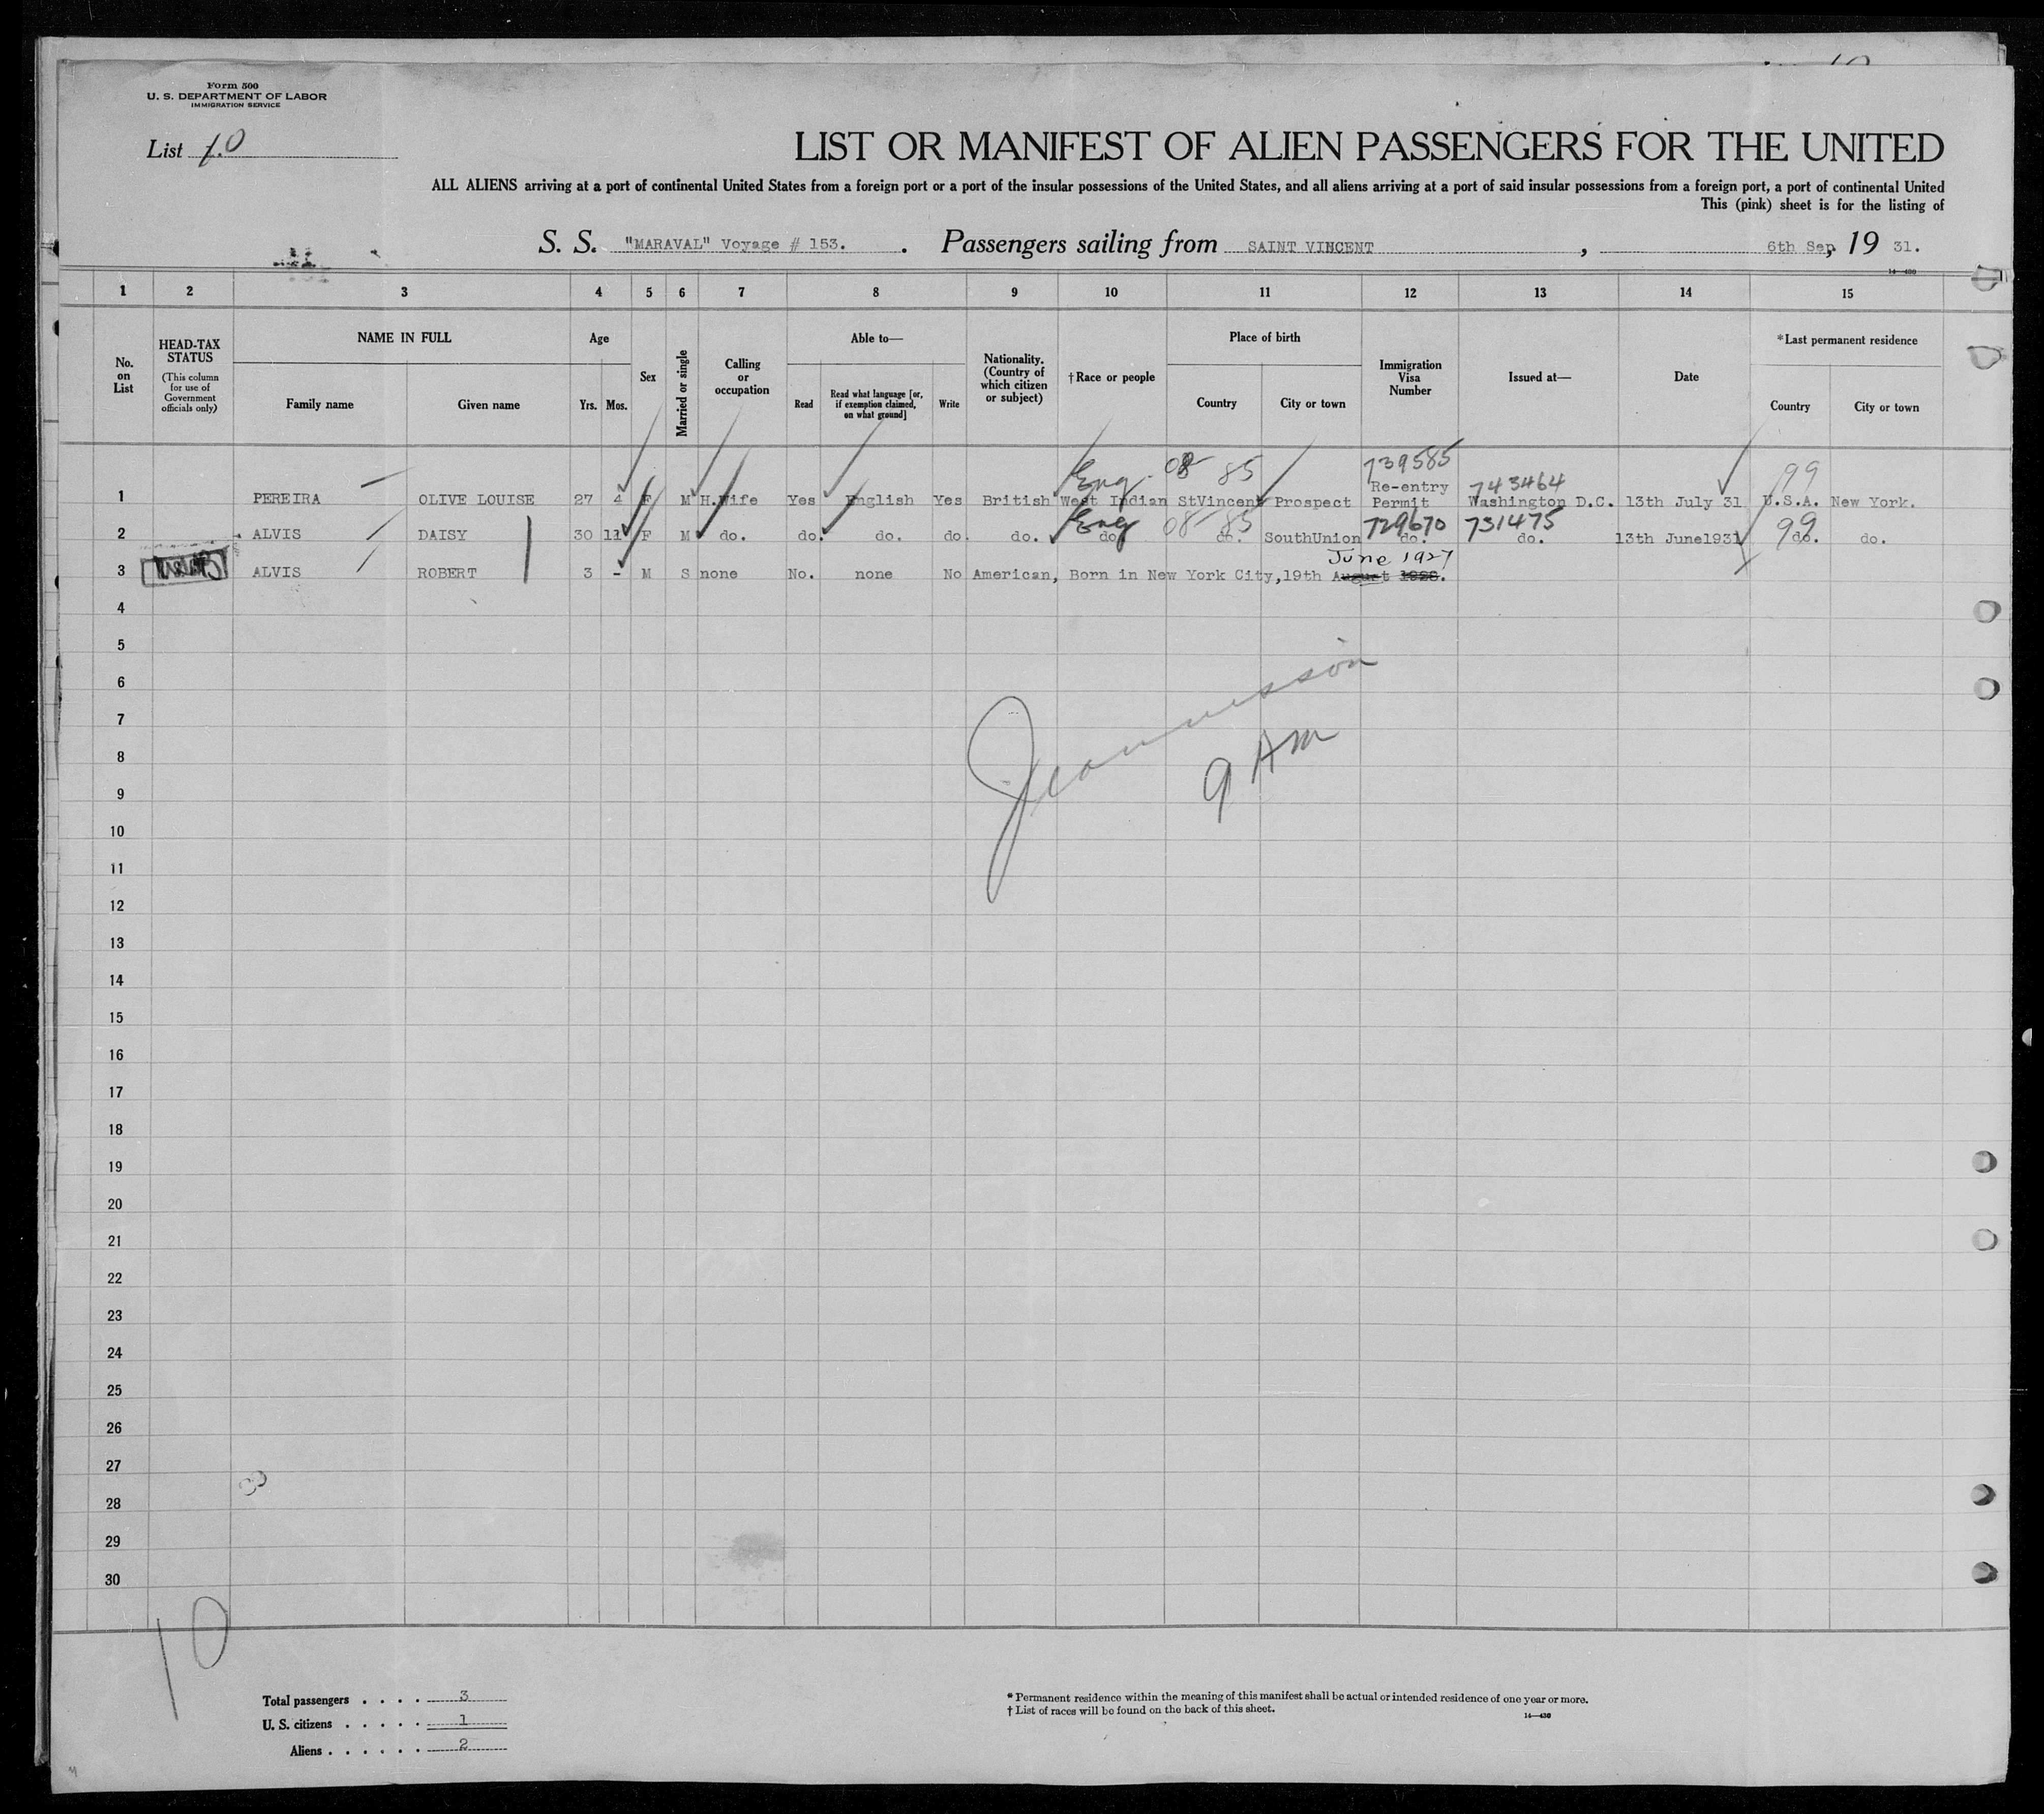 Form 500
U. S. DEPARTMENT OF LABOR
IMMIGRATION SERVICE
List 10
LIST OR MANIFEST OF ALIEN PASSENGERS FOR THE UNITED
ALL ALIENS arriving at a port of continental United States from a foreign port or a port of the insular possessions of the United States, and all aliens arriving at a port of said insular possessions from a foreign port, a port of continental United
This (pink) sheet is for the listing of
S. S. "MARAVAL" Voyage # 153. . Passengers sailing from SAINT VINCENT , 6th Sep, 19 31.
14—430
1 2 3 4 5 6 7 8 9 10 11 12 13 14 15
No. on List
HEAD-TAX STATUS
(This column for use of Government officials only)
NAME IN FULL
Family name
Given name
Age
Yrs. Mos.
Sex
Married or single
Calling or occupation
Able to—
Read
Read what language [or, if exemption claimed, on what ground]
Write
Nationality. (Country of which citizen or subject)
†Race or people
Place of birth
Country
City or town
Immigration Visa Number
Issued at—
Date
*Last permanent residence
Country
City or town
Eng. 08 85 739585 743464 99
1 PEREIRA OLIVE LOUISE 27 4 F M H.Wife Yes English Yes British West Indian StVincent Prospect Re-entry Permit Washington D.C. 13th July 31 U.S.A. New York.
Eng 08 85 729670 731475 99
2 ALVIS DAISY 30 11 F M do. do. do. do do. do do. SouthUnion do. do. 13th June1931 do. do.
June 1927
3 ALVIS ROBERT 3 - M S none No. none No American, Born in New York City,19th August 1928.
4
5
6
7
8
9
10
11
12
13
14
15
16
17
18
19
20
21
22
23
24
25
26
27
28
29
30
9 AM
10
Total passengers . . . . 3
U. S. citizens . . . . . 1
Aliens . . . . . . 2
* Permanent residence within the meaning of this manifest shall be actual or intended residence of one year or more.
† List of races will be found on the back of this sheet.
14—430